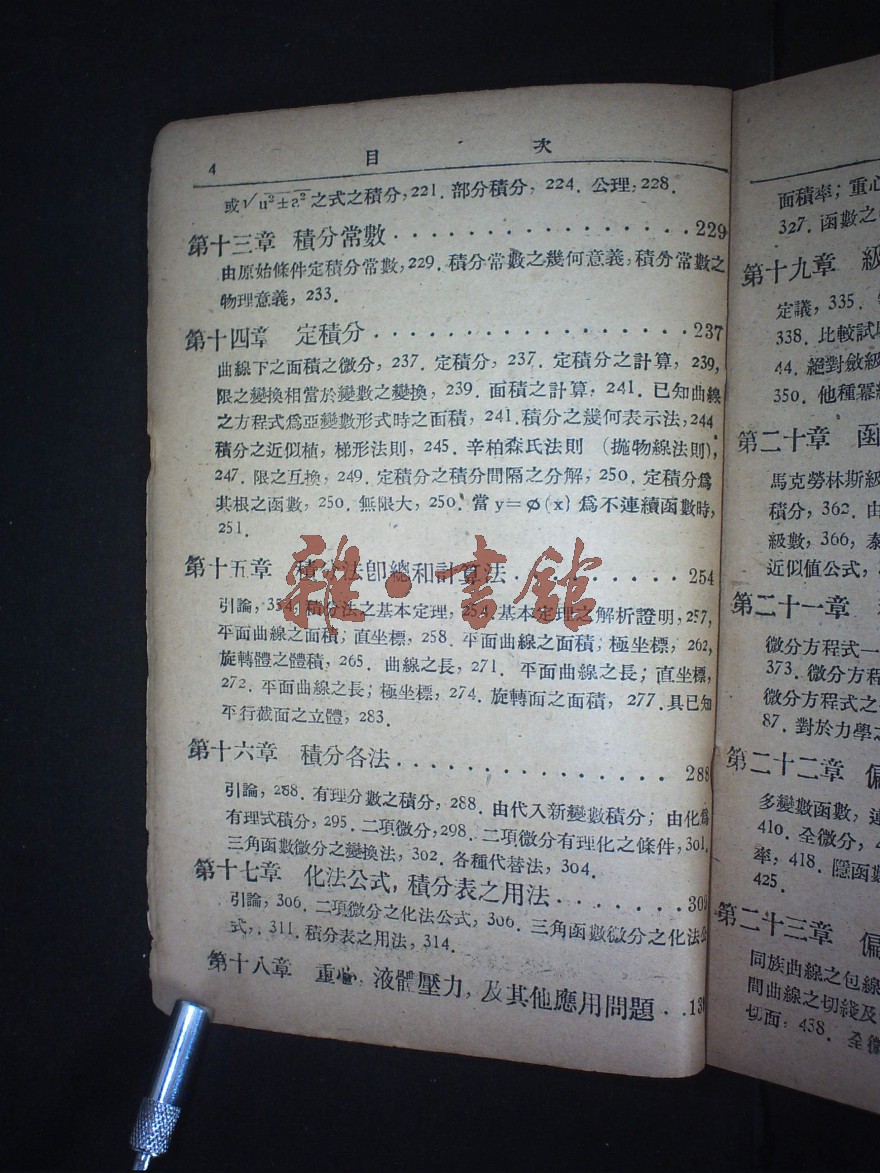 4 目 次
或√u²±a² 之式之積分,221. 部分積分, 224. 公理,228.
第十三章 積分常數 . . . . . . . . . . . . . . . . 229
由原始條件定積分常數,229. 積分常數之幾何意義,積分常數之
物理意義, 233.
第十四章 定積分 . . . . . . . . . . . . . . . . . 237
曲線下之面積之微分, 237. 定積分, 237. 定積分之計算, 239,
限之變換相當於變數之變換, 239. 面積之計算, 241. 已知曲線
之方程式爲亞變數形式時之面積, 241.積分之幾何表示法,244
積分之近似植, 梯形法則, 245. 辛柏森氏法則 (拋物線法則),
247. 限之互換, 249. 定積分之積分間隔之分解, 250. 定積分爲
其根之函數, 250. 無限大, 250. 當 y=ø(x) 爲不連續函數時,
251.
第十五章 積分法卽總和計算法 . . . . . . . . . . 254
引論, 354, 積分法之基本定理, 254, 基本定理之解析證明, 257,
平面曲線之面積; 直坐標, 258. 平面曲線之面積; 極坐標, 262,
旋轉體之體積, 265. 曲線之長, 271. 平面曲線之長; 直坐標,
272. 平面曲線之長; 極坐標, 274. 旋轉面之面積, 277.具已知
平行截面之立體, 283.
第十六章 積分各法 . . . . . . . . . . . . . . . 288
引論, 288. 有理分數之積分, 288. 由代入新變數積分; 由化爲
有理式積分, 295. 二項微分, 298. 二項微分有理化之條件, 301.
三角函數微分之變換法, 302. 各種代替法, 304.
第十七章 化法公式, 積分表之用法 . . . . . . .
引論, 306. 二項微分之化法公式, 306. 三角函數微分之化法公
式, . 311. 積分表之用法, 314.
第十八章 重心, 液體壓力, 及其他應用問題 . .
雅·書館
面積率; 重心
327. 函數之
第十九章 級
定議, 335.
338. 比較試
44. 絕對斂級
350. 他種冪
第二十章 函
馬克勞林斯級
積分, 362. 由
級數, 366, 泰
近似值公式,
第二十一章
微分方程式一
373. 微分方程
微分方程式之
87. 對於力學之
第二十二章 偏
多變數函數, 連
410. 全微分,
率, 418. 隱函數
425.
第二十三章 偏
同族曲線之包線
間曲線之切綫及
切面; 438. 全微